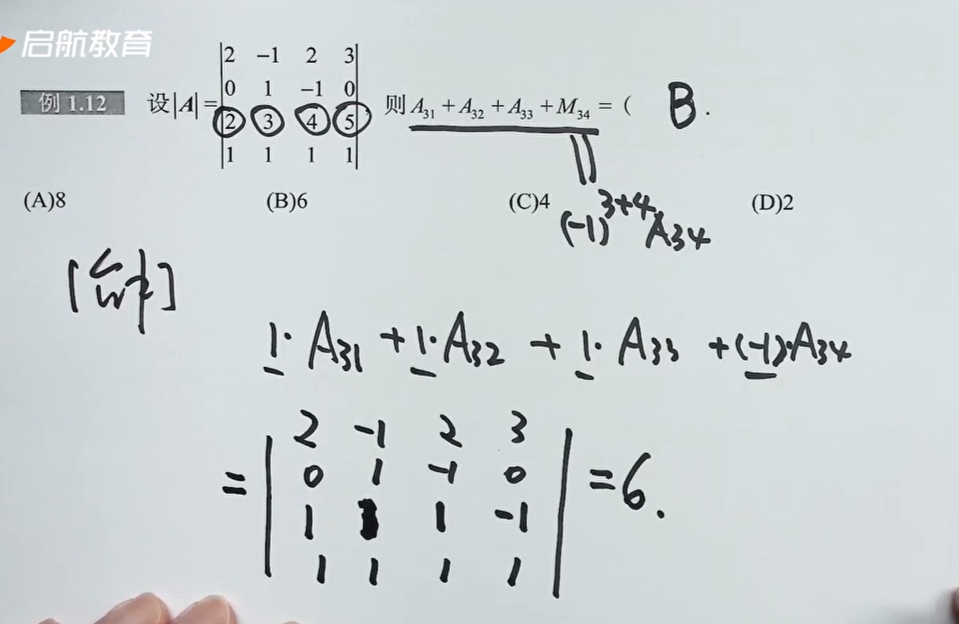 启航教育
例 1.12 设|A|=
2 -1 2 3
0 1 -1 0
2 3 4 5
1 1 1 1
则 A₃₁+A₃₂+A₃₃+M₃₄=( B .
(A)8 (B)6 (C)4 (D)2
(-1)³⁺⁴A₃₄
[解]
1·A₃₁+1·A₃₂+1·A₃₃+(-1)·A₃₄
=
2 -1 2 3
0 1 -1 0
1 1 1 -1
1 1 1 1
=6.